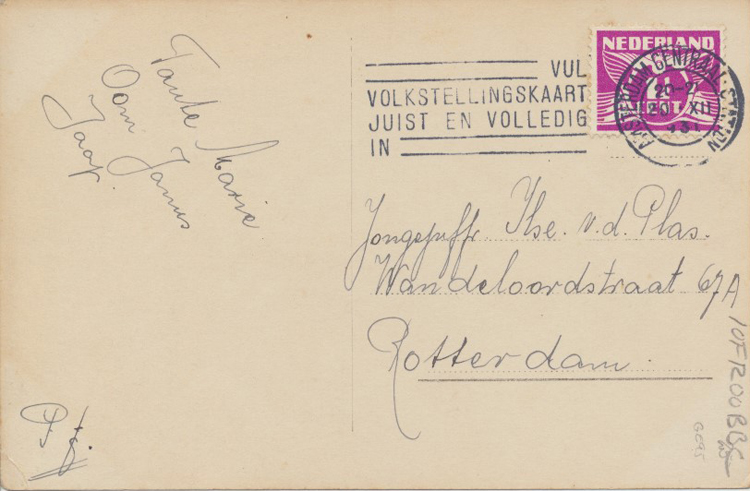 Tante Marie
Oom Janus
Jaap.
VUL
VOLKSTELLINGSKAART
JUIST EN VOLLEDIG
IN
NEDERLAND
AMSTERDAM CENTRAAL-STATION
20 XII
Jongejuffr. Ilse v.d. Plas.
Wandeloordstraat 67A
Rotterdam.
10F1200BBS
G095